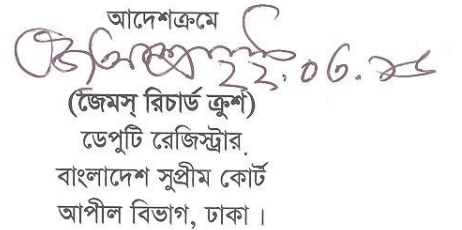 আদেশক্রমে
২২.০৬.২৫
(জেমস্ রিচার্ড ক্রুশ)
ডেপুটি রেজিস্ট্রার
বাংলাদেশ সুপ্রীম কোর্ট
আপীল বিভাগ, ঢাকা ।